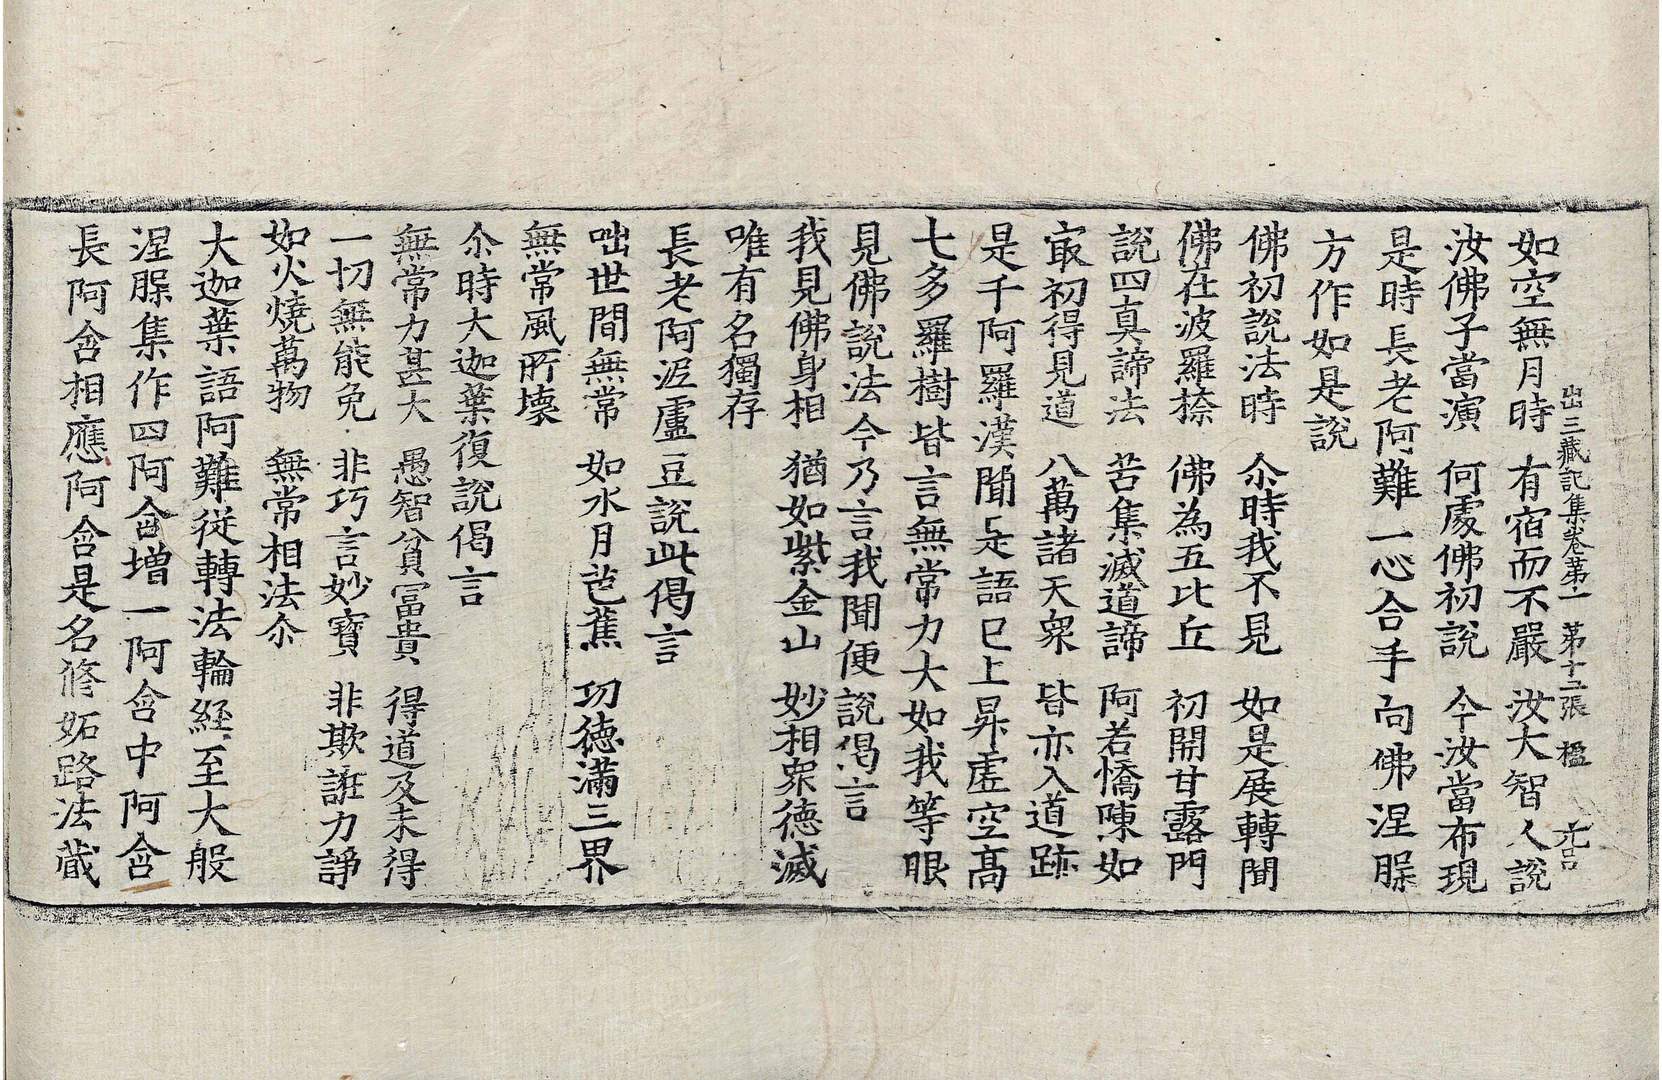 出三藏記集卷第一 第十二張 楹
如空無月時 有宿而不嚴 汝大智人說
汝佛子當演 何處佛初說 今汝當布現
是時長老阿難一心合手向佛涅槃
方作如是說
佛初說法時 尒時我不見 如是展轉聞
佛在波羅捺 佛為五比丘 初開甘露門
說四真諦法 苦集滅道諦 阿若憍陳如
冣初得見道 八萬諸天衆 皆亦入道跡
是千阿羅漢聞是語已上昇虛空高
七多羅樹皆言無常力大如我等眼
見佛說法今乃言我聞便說偈言
我見佛身相 猶如紫金山 妙相衆德滅
唯有名獨存
長老阿泥盧豆說此偈言
咄世間無常 如水月芭蕉 功德滿三界
無常風所壞
尒時大迦葉復說偈言
無常力甚大 愚智貧冨貴 得道及未得
一切無能免 非巧言妙寶 非欺誑力諍
如火燒萬物 無常相法尒
大迦葉語阿難從轉法輪經至大般
涅槃集作四阿含增一阿含中阿含
長阿含相應阿含是名修妬路法藏